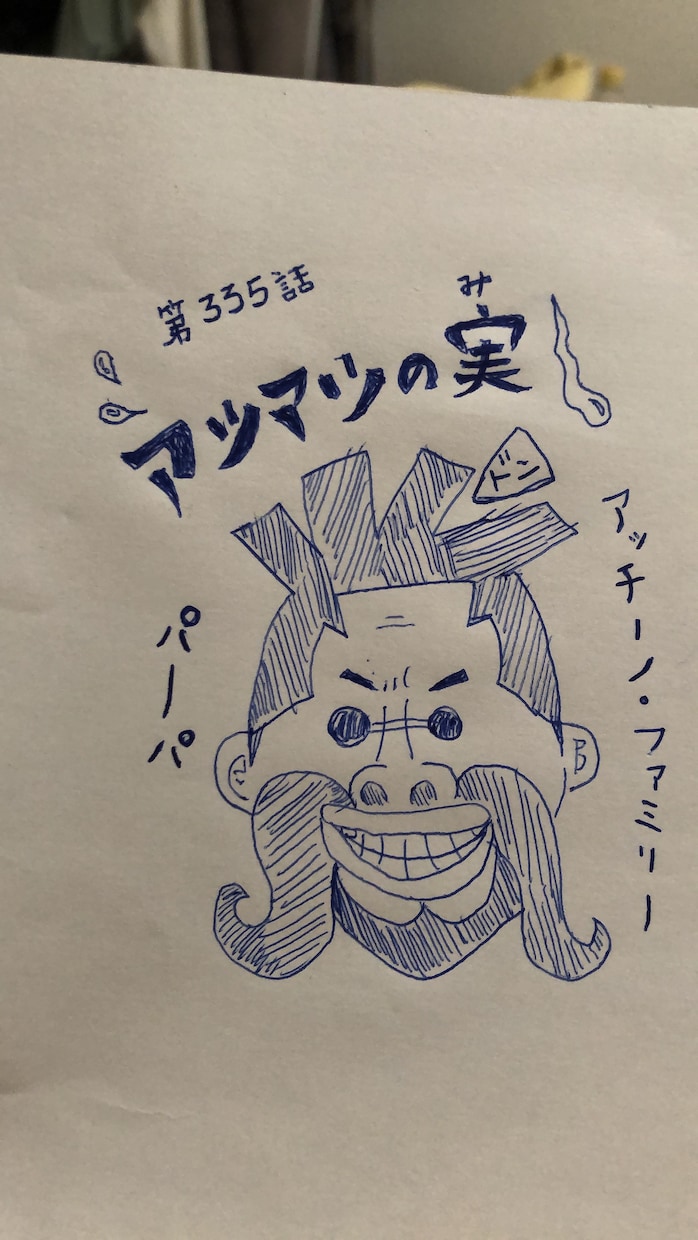 第335話
アツマツの実
み
ドン
アッチーノ・ファミリー
パーパ